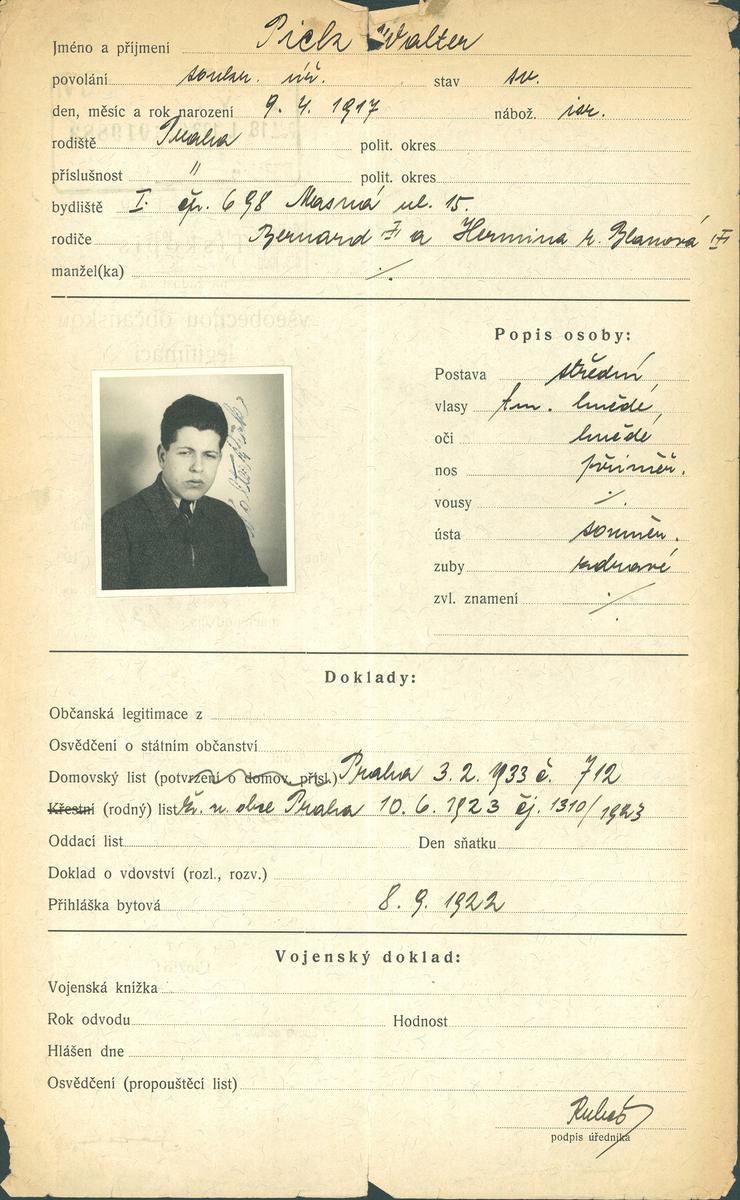 Jméno a příjmení Pick Walter
povolání soukr. úř. stav sv.
den, měsíc a rok narození 9. 4. 1917 nábož. isr.
rodiště Praha polit. okres
příslušnost " polit. okres
bydliště I. čp. 698 Masná ul. 15.
rodiče Bernard a Hermina r. Blanová
manžel(ka) ./.
Popis osoby:
Postava střední
vlasy tm. hnědé
oči hnědé
nos přiměř.
vousy ./.
ústa souměr.
zuby zdravé
zvl. znamení ./.
Walter Pick
Doklady:
Občanská legitimace z
Osvědčení o státním občanství
Domovský list (potvrzení o domov. přísl.) Praha 3. 2. 1933 č. 712
Křestní (rodný) list ž. n. obce Praha 10. 6. 1923 čj. 1310/1923
Oddací list Den sňatku
Doklad o vdovství (rozl., rozv.)
Přihláška bytová 8. 9. 1922
Vojenský doklad:
Vojenská knížka
Rok odvodu Hodnost
Hlášen dne
Osvědčení (propouštěcí list)
podpis úředníka